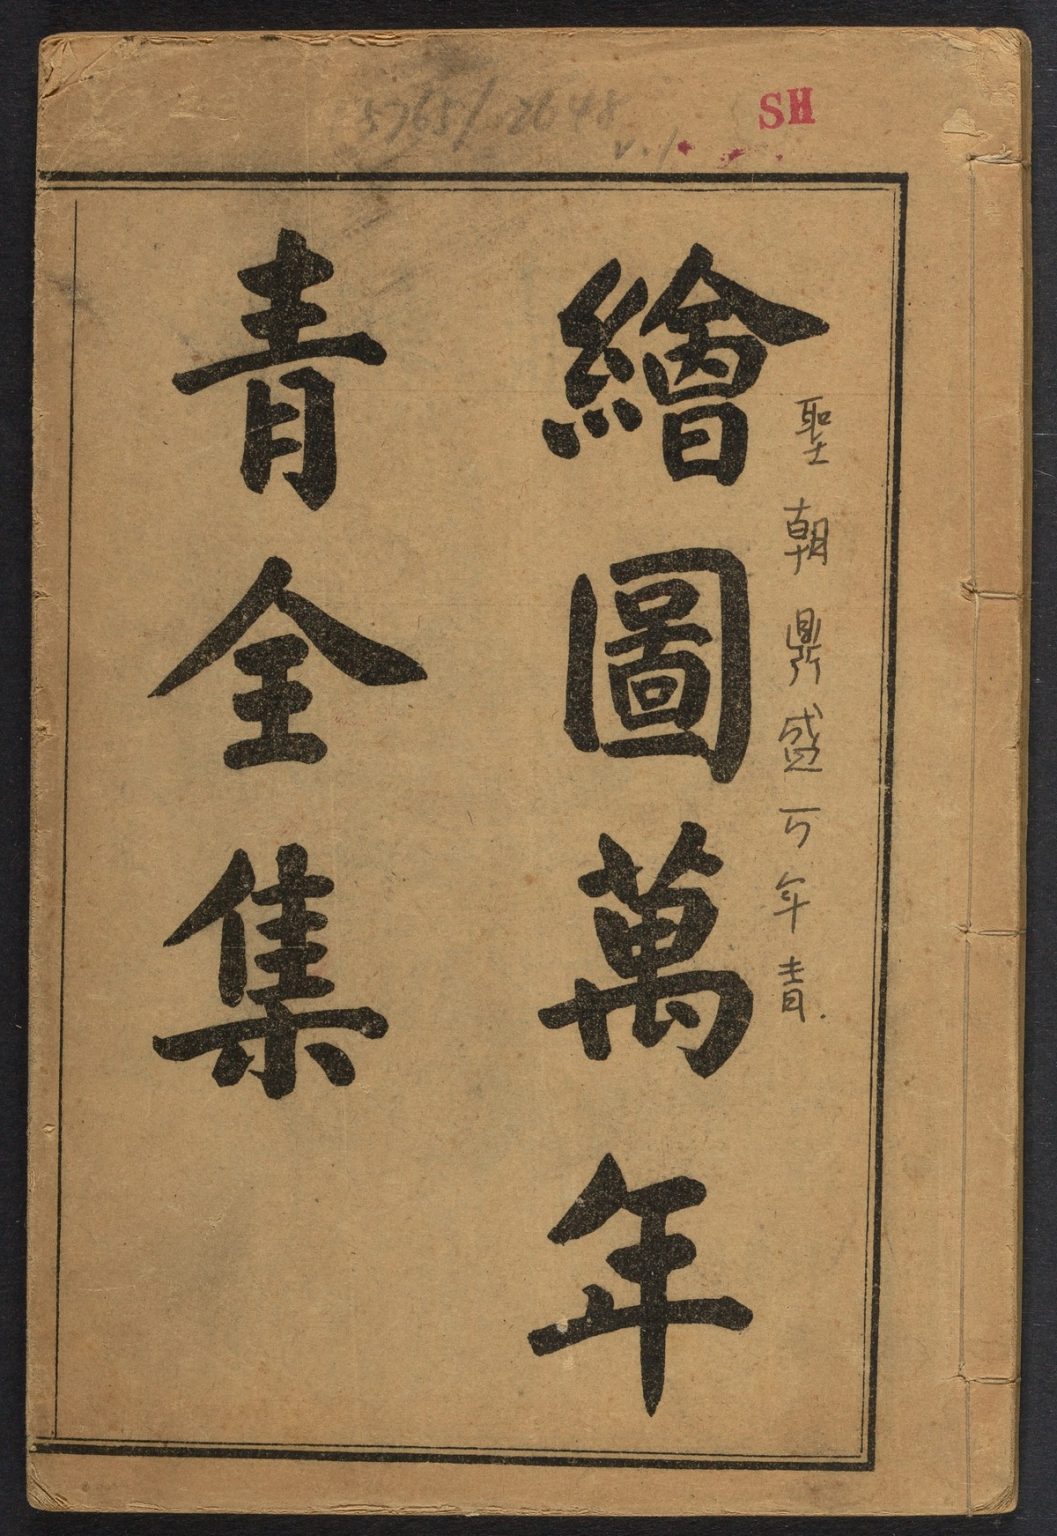 SH
v.1
聖朝鼎盛万年青.
繪圖萬年
青全集